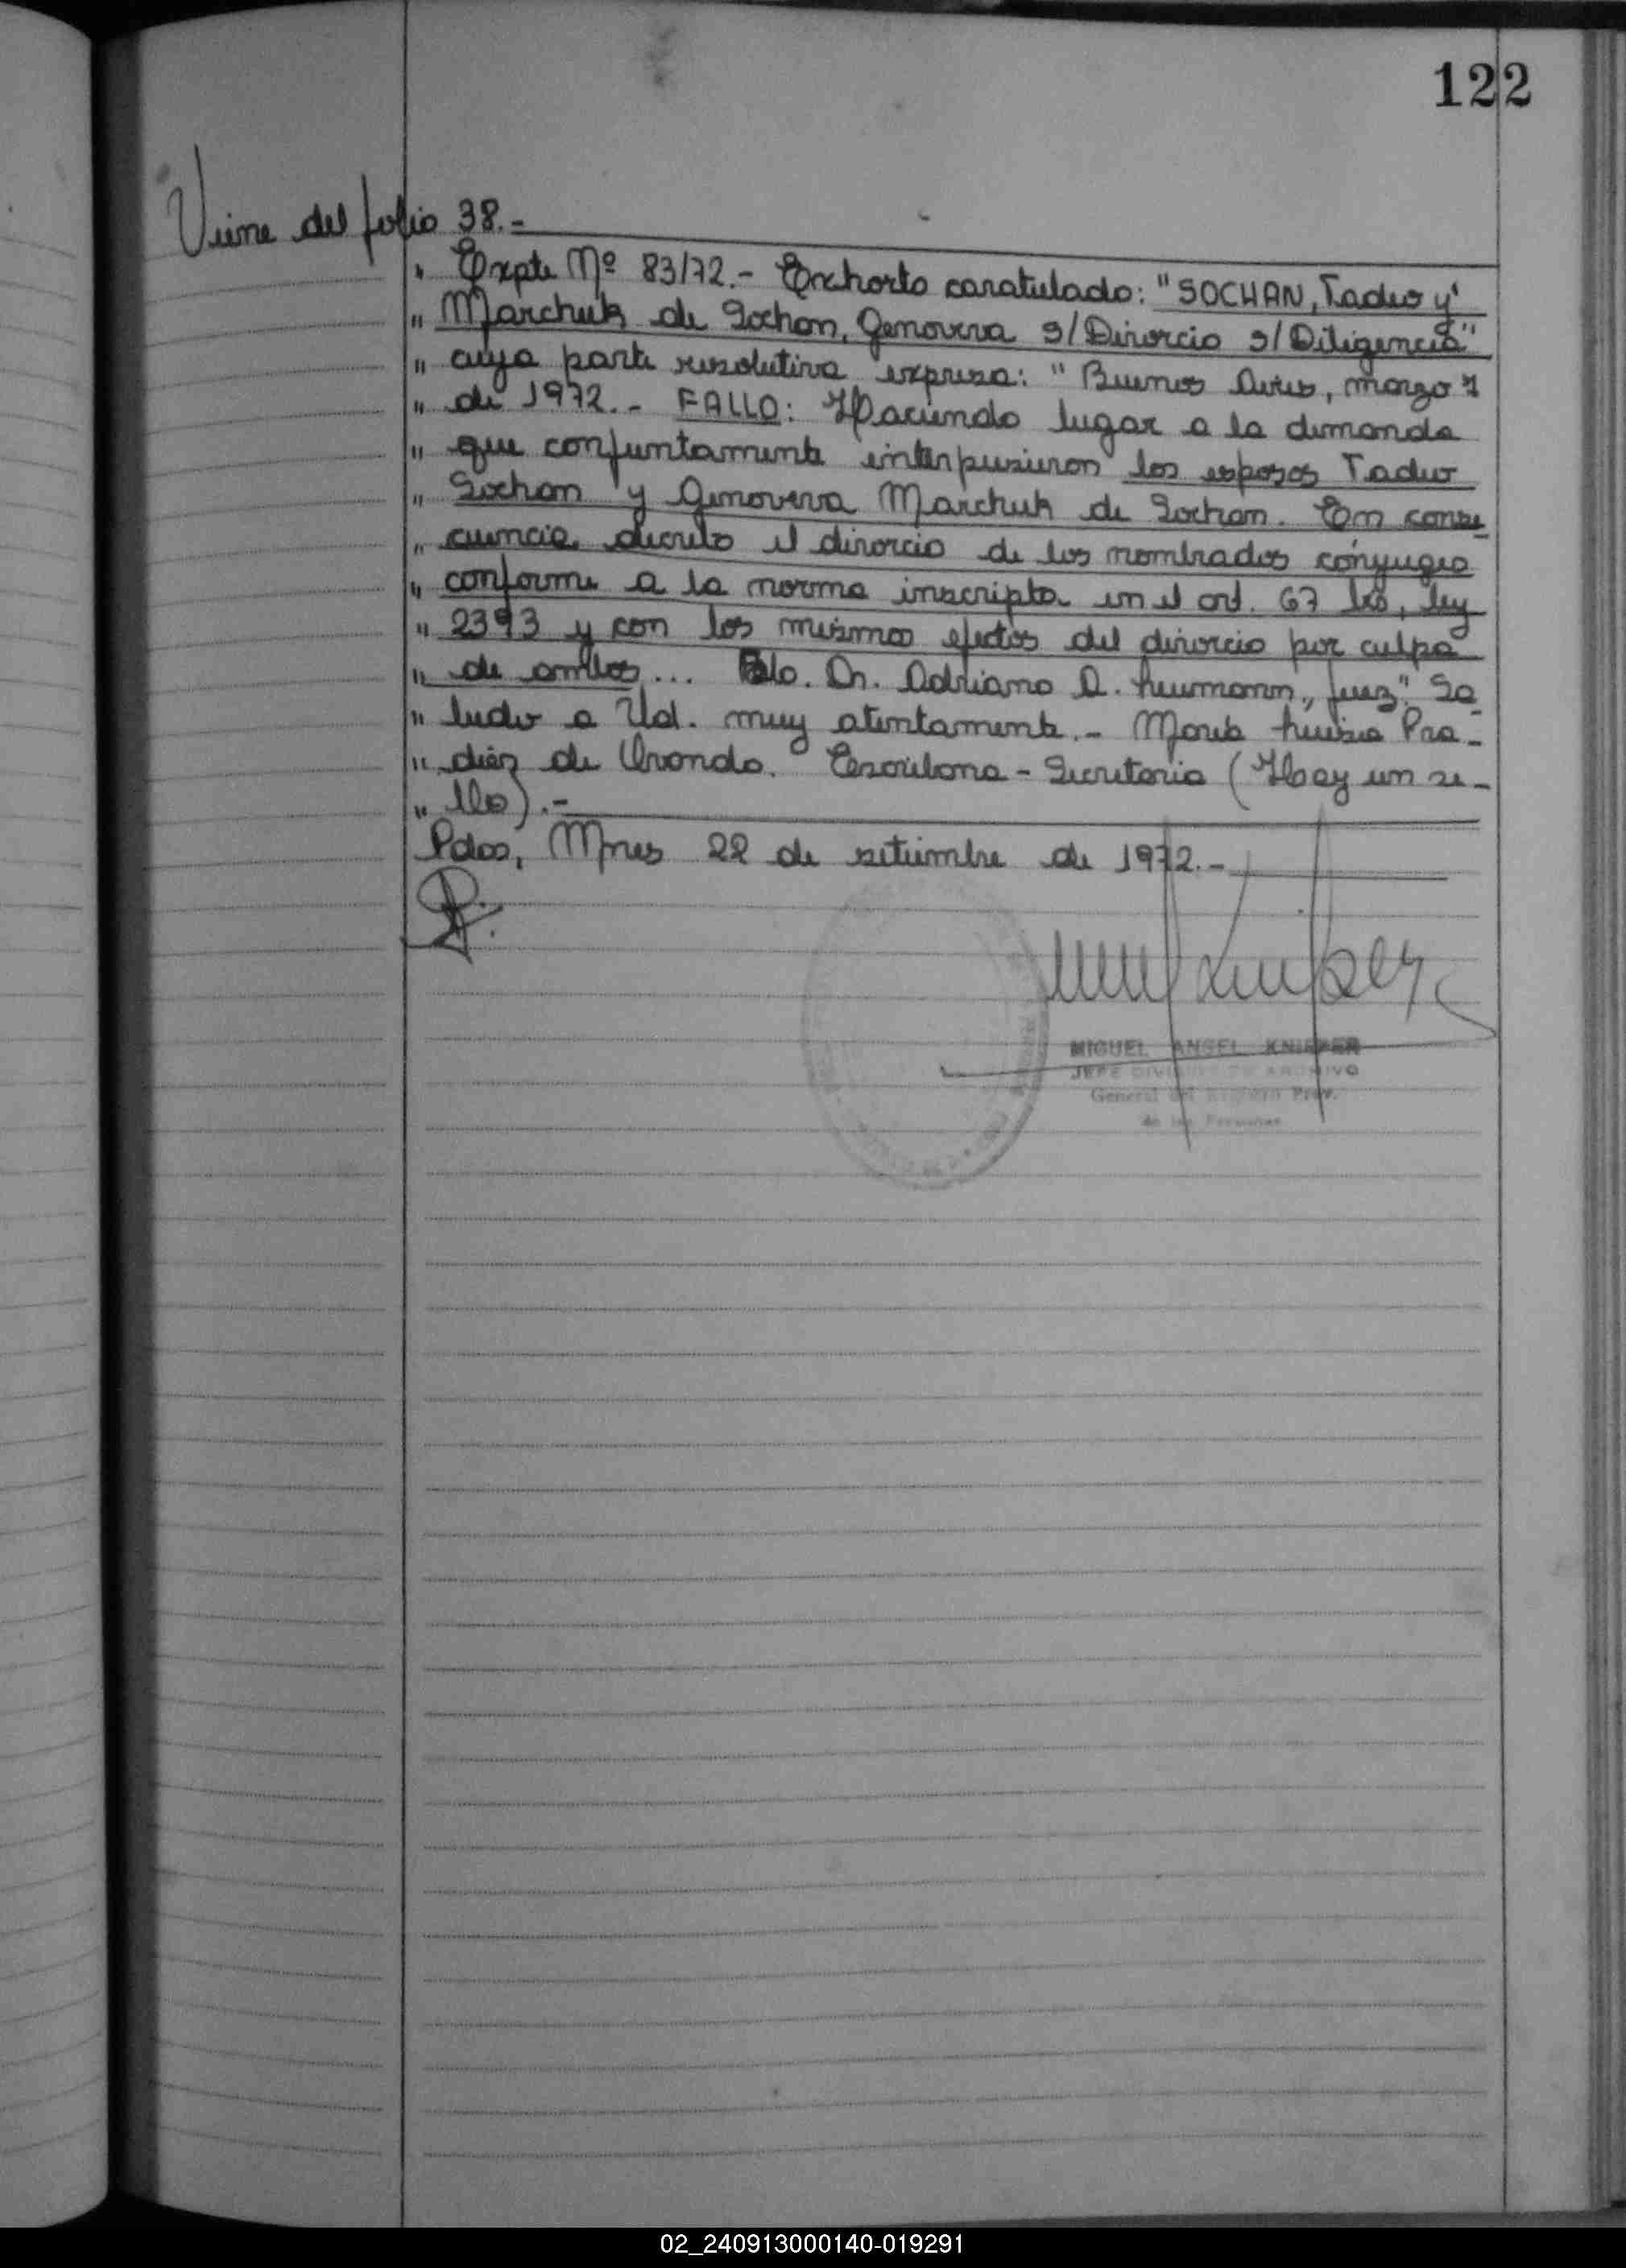 122
Viene del folio 38.-
" Expte Nº 83/72.- Exhorto caratulado: "SOCHAN, Tadeo y"
" Marchuk de Sochan, Genoveva s/Divorcio s/Diligencia"
" cuya parte resolutiva expresa: " Buenos Aires, marzo 7
" de 1972.- FALLO: Haciendo lugar a la demanda
" que conjuntamente interpusieron los esposos Tadeo
" Sochan y Genoveva Marchuk de Sochan. En conse
" cuencia, decreto el divorcio de los nombrados cónyuges
" conforme a la norma inscripta en el art. 67 bis, ley
" 2393 y con los mismos efectos del divorcio por culpa
" de ambos... Fdo. Dr. Adriano A. Neumann, juez". Sa
" ludo a Ud. muy atentamente.- María Luisa Pra-
" diez de Ovando. Escribana - Secretaria (Hay un se-
" llo).-
Pdas, Mnes 22 de setiembre de 1972.-
MIGUEL ANGEL KNIEPER
JEFE DIVISION DE ARCHIVO
General del Registro Prov.
de las Personas
02_240913000140-019291